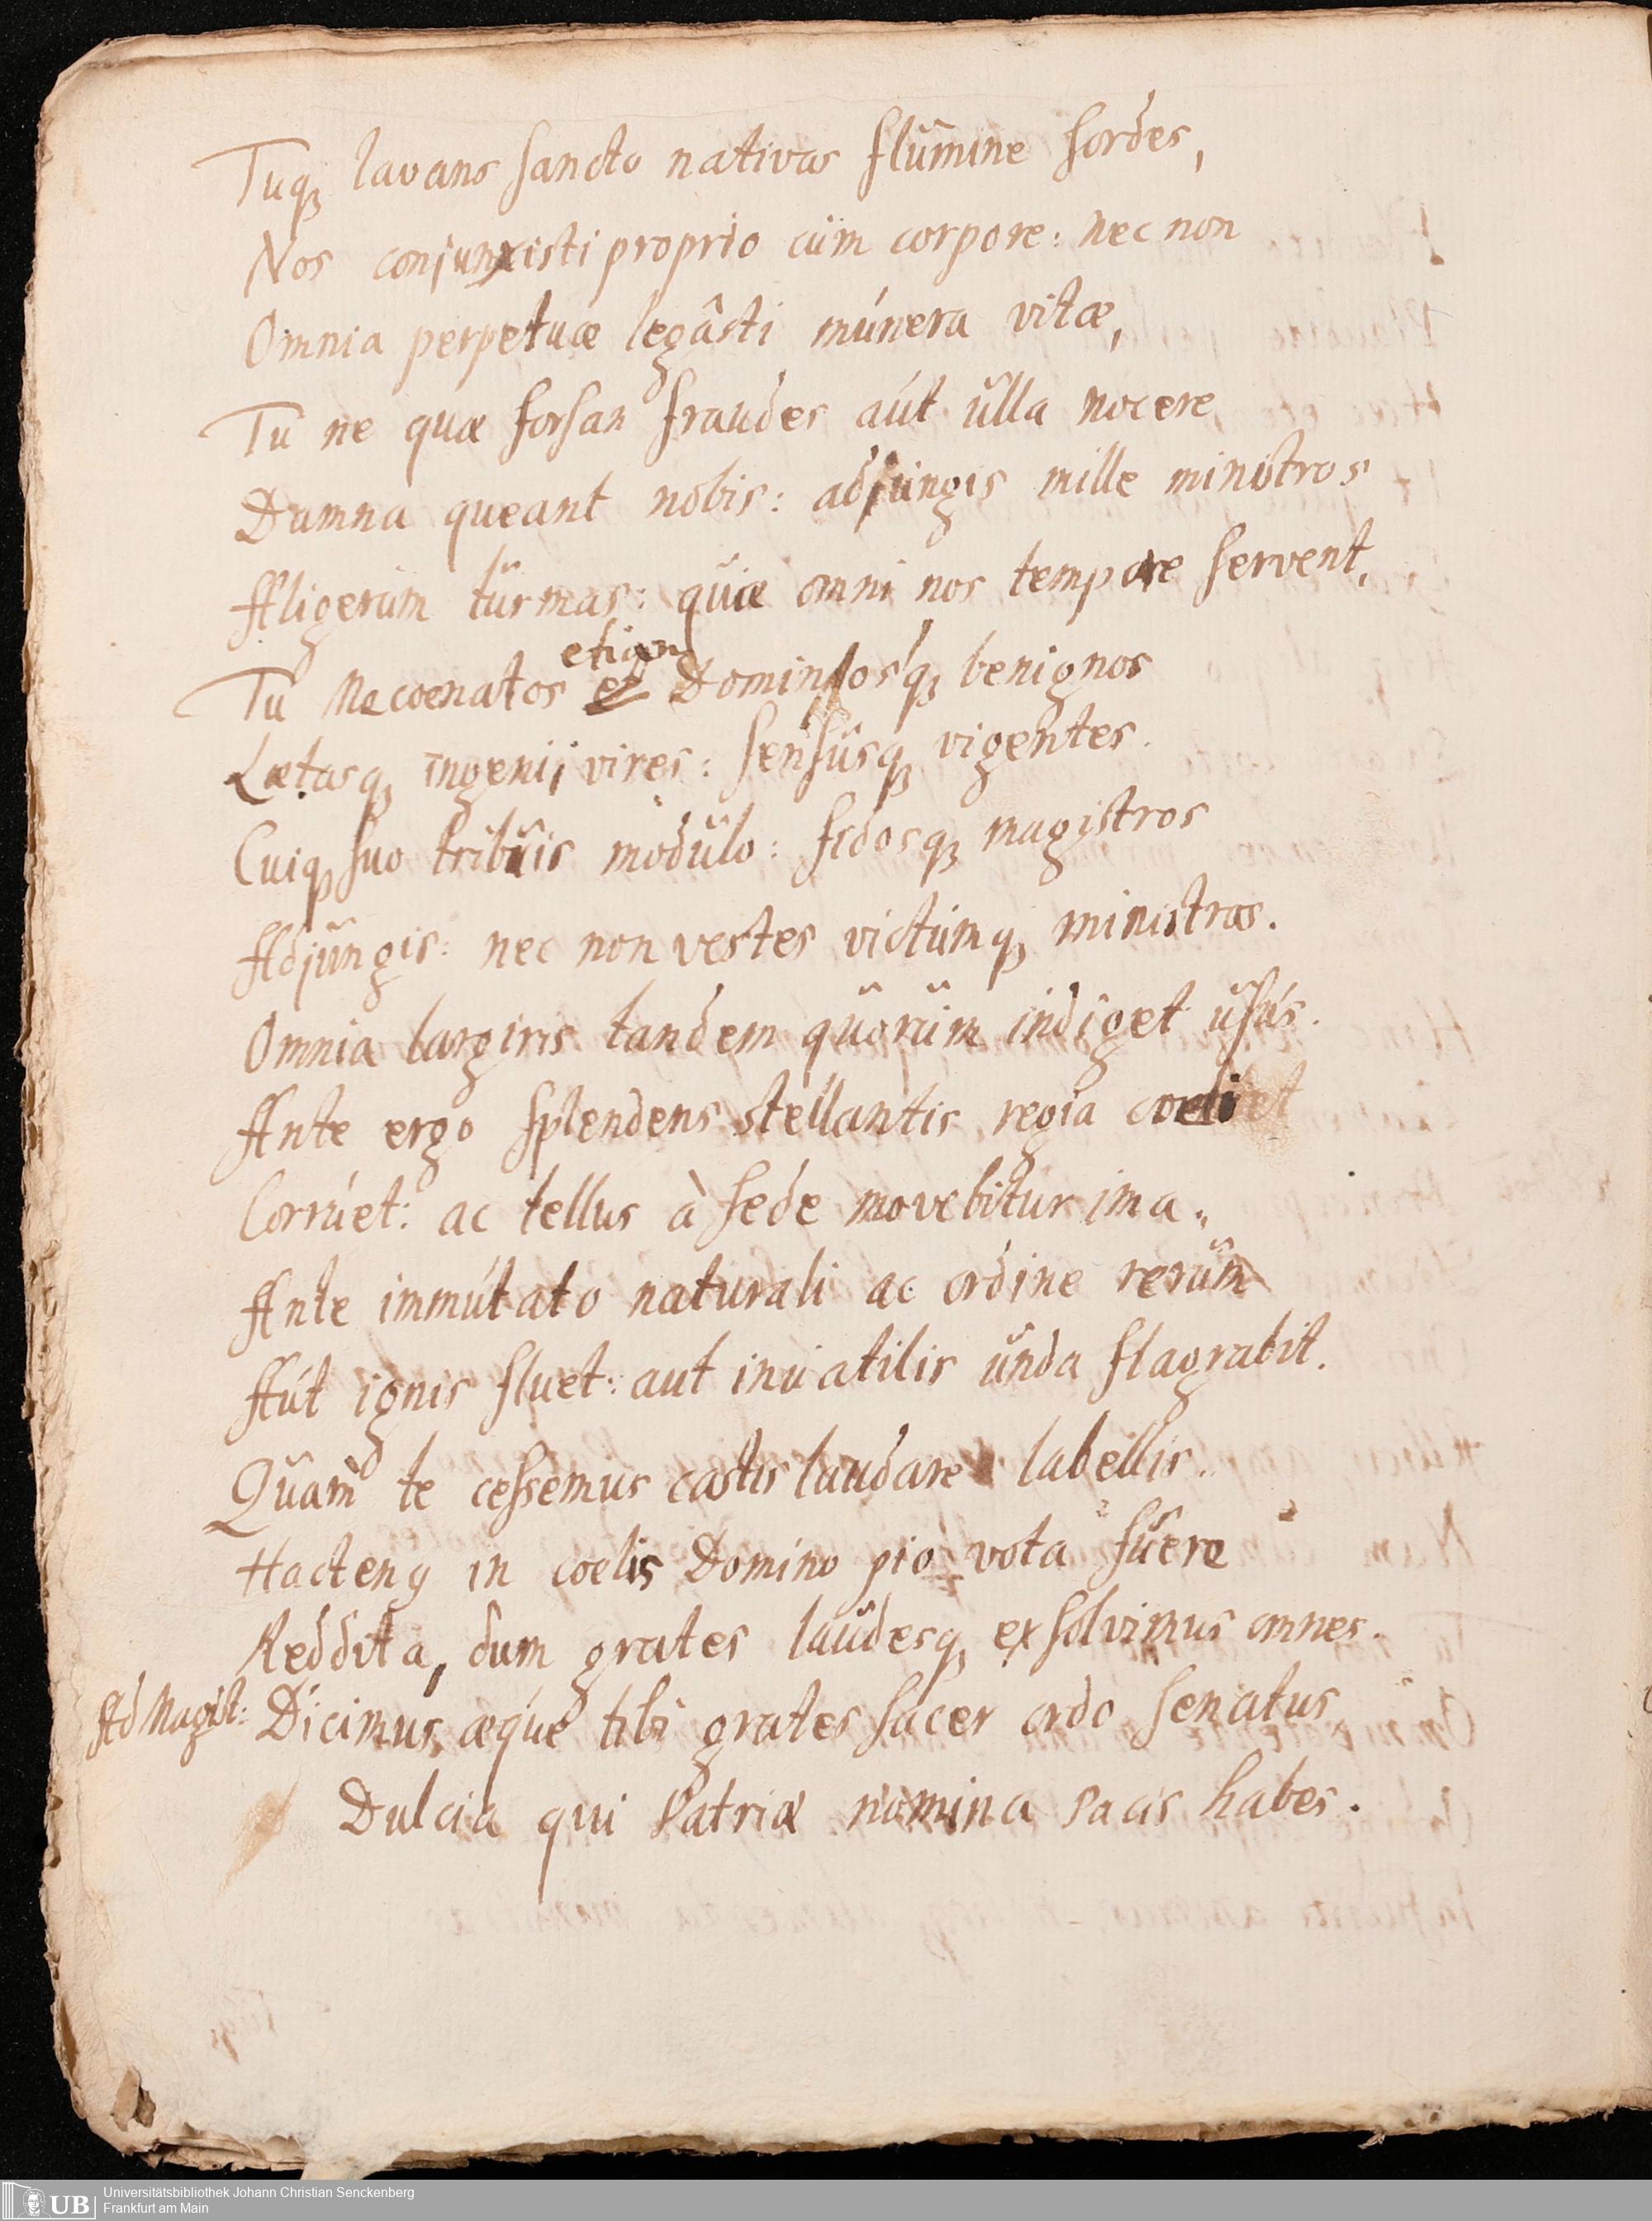 Tuqꝫ lavans sancto nativas flumine sordes,
Nos conjunxisti proprio cum corpore: nec non
Omnia perpetuæ legâsti múnera vitæ,
Tu ne quæ forsan fraudes aut ulla nocere
Damna queant nobis: adjungis mille ministros
Aligerum turmas: quæ omni nos tempore servent,
etiam
Tu Mecoenatos et Dominosqꝫ benignos
Lætasqꝫ ingenij vires: sensusqꝫ vigentes.
Cuiqꝫ suo tribuis modulo: fidosqꝫ magistros
Adjungis: nec non vestes victumqꝫ ministras.
Omnia largiris tandem quorum indiget usus.
Ante ergo splendens stellantis regia coeli
Corrúet: ac tellus à sede movebitur ima.
Ante immútato naturali ac ordine rerum
Aút ignis fluet: aut inuatilis unda flagrabit.
Quam te cessemus castis laudare labellis.
Hactenꝰ in coelis Domino pio vota fuere
Reddita, dum grates laudesqꝫ exsolvimus omnes.
Ad Magist: Dicimus æque tibi grates sacer ordo senatus
Dulcia qui Patriæ nomina Pacis habes.
UB Universitätsbibliothek Johann Christian Senckenberg
Frankfurt am Main